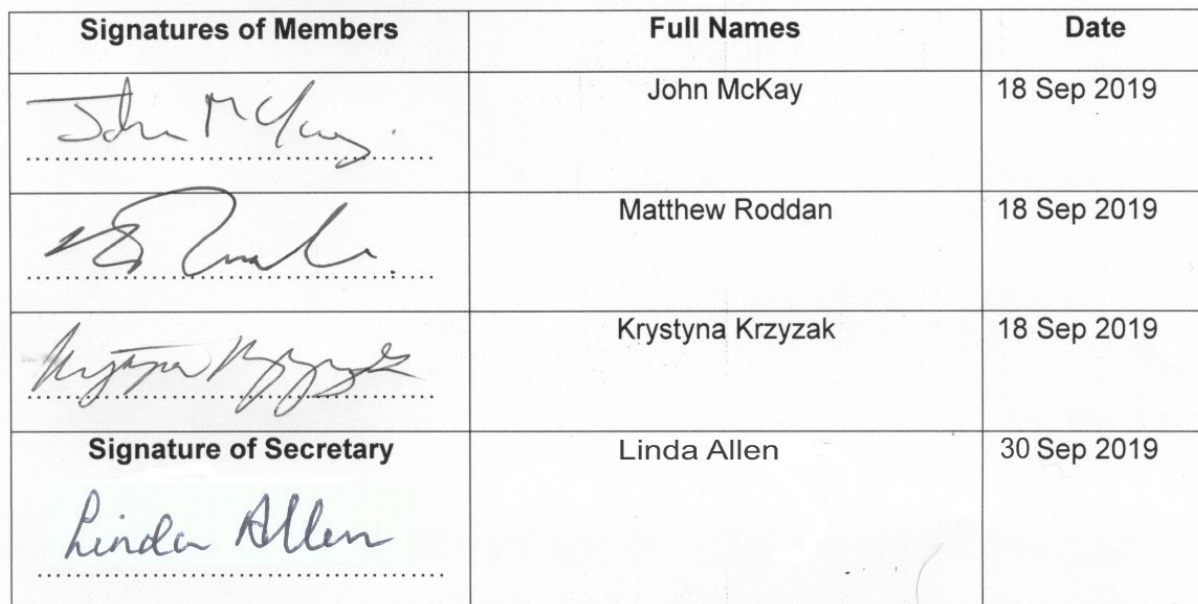 Signatures of Members Full Names Date
John McKay John McKay 18 Sep 2019
Matthew Roddan 18 Sep 2019
Krystyna Krzyzak Krystyna Krzyzak 18 Sep 2019
Signature of Secretary Linda Allen 30 Sep 2019
Linda Allen